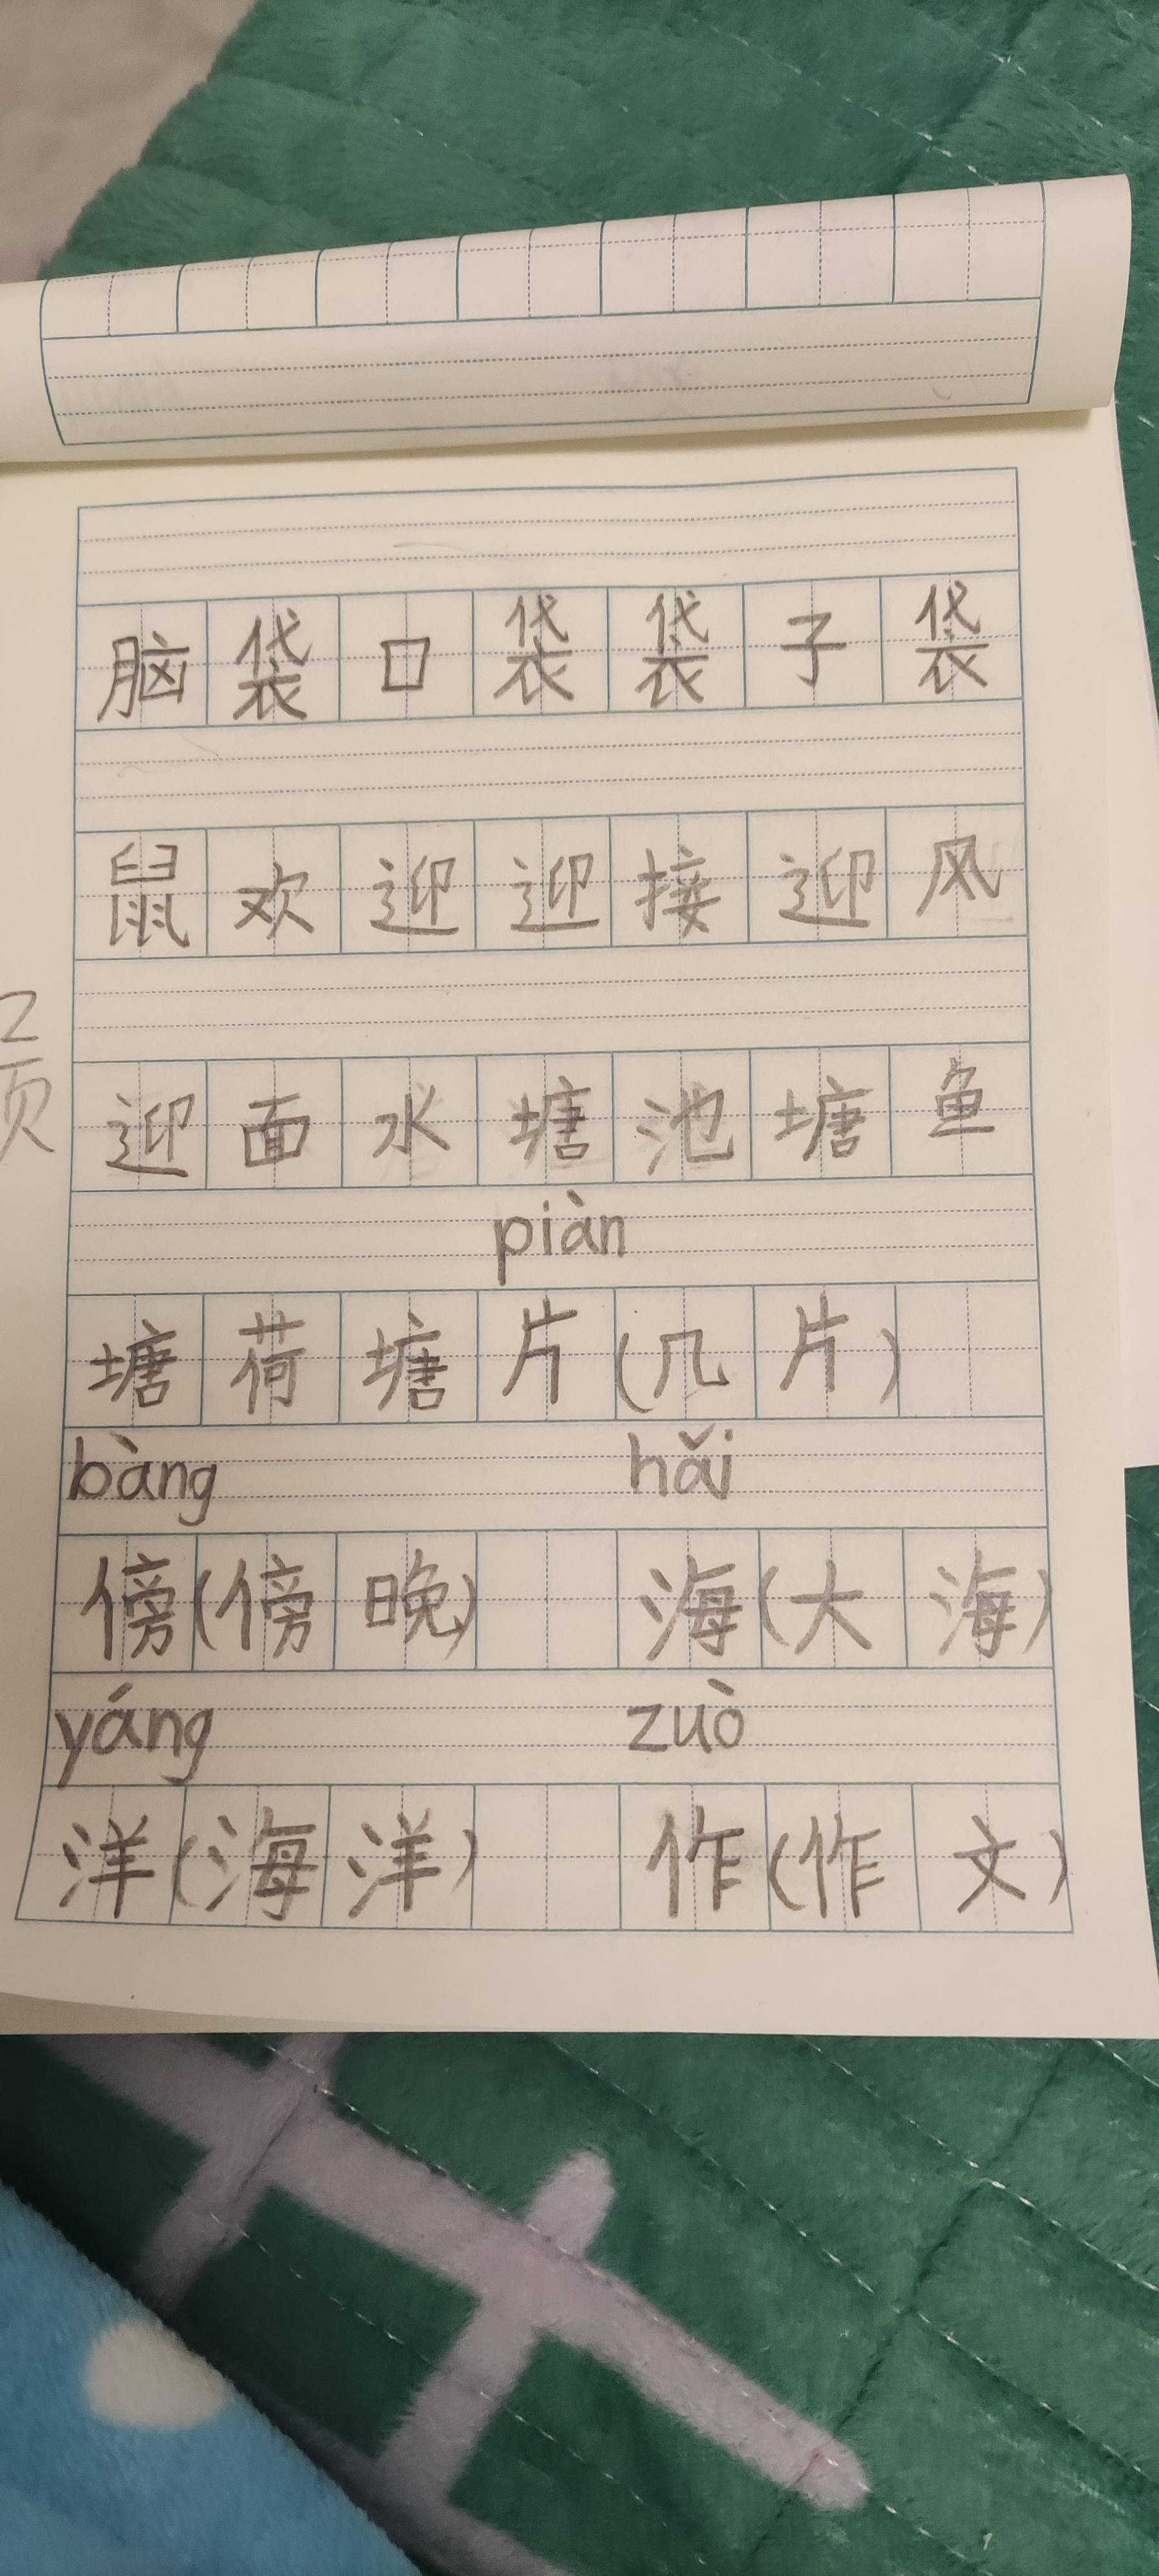 脑袋口袋袋子袋
鼠欢迎迎接迎风
迎面水塘池塘鱼
piàn
塘荷塘片(几片)
bàng hǎi
傍(傍晚) 海(大海)
yáng zuò
洋(海洋) 作(作文)